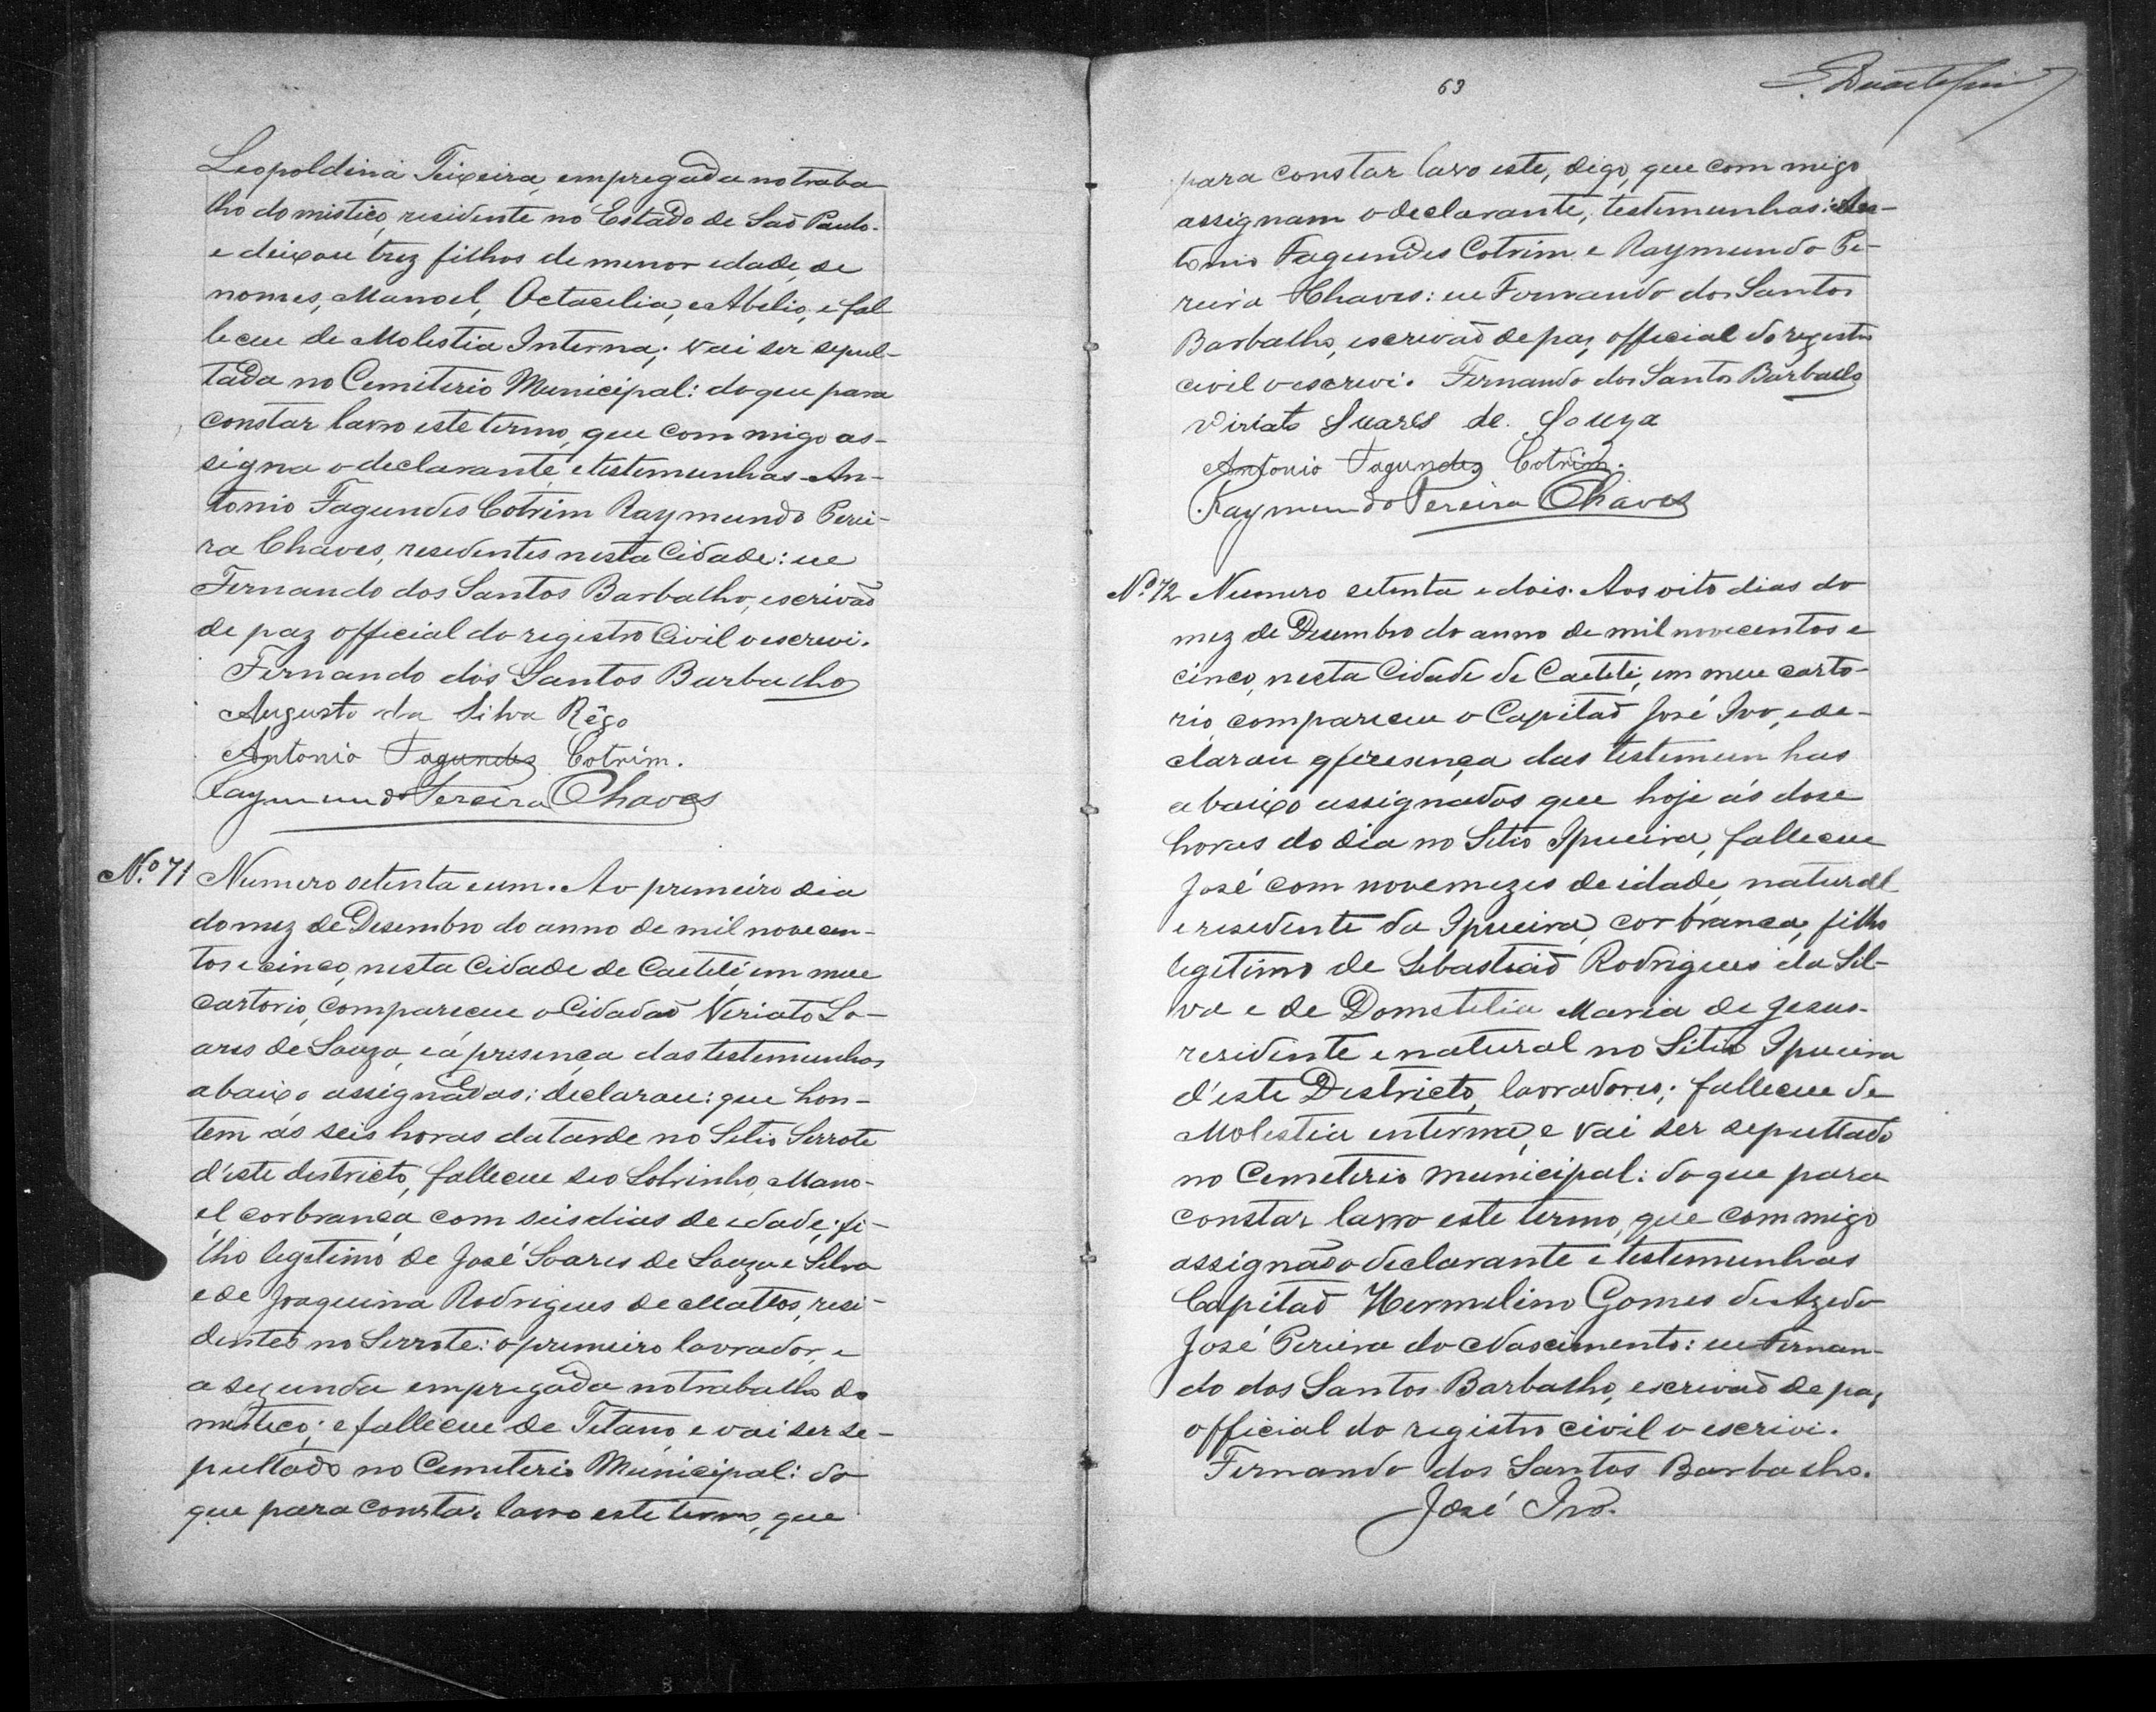 Leopoldina Teixeira, empregada no traba
lho domistico, residente no Estado de Saõ Paulo.
e deixou trez filhos de menor edade, de
nomes, Manoel, Octacilia, e Abelio, e fal
leceu de Molestia Interna; vai ser sepul-
tada no Cemiterio Municipal: do que para
constar lavro este termo, que com migo as-
signa o declarante, e testemunhas An-
tonio Fagundes Cotrim Raymundo Perei-
ra Chaves, resedentes nesta Cidade: eu
Fernando dos Santos Barbalho, escrivaõ
de paz official do registro Civil o escrevi.
Fernando dos Santos Barbalho
Augusto da Silva Rêgo
Antonio Fagundes Cotrim.
Raymundo Pereira Chaves
Nº 71 Numero setenta e um. Ao primeiro dia
do mez de Desembro do anno de mil novecen-
tos e cinco, nesta Cidade de Caeteté, em meu
cartorio, compareceu o Cidadaõ Veriato So-
ares de Souza, e á presença das testemunhas
abaixo assignadas; declarou: que hon-
tem ás seis horas da tarde no Sitio Serrote
d'este destricto, falleceu seo Sobrinho, Mano-
el cor branca com seis dias de edade; fi-
lho legetimo de José Soares de Souza e Silva
e de Joaquina Rodrigues de Mattos, resi-
dentes no Serrote: o primeiro lavrador, e
a segunda empregada no trabalho do
mistico; e falleceu de Tetano e vai ser se-
pultado no Cemiterio Municipal: do
que para constar lavro este termo, que
63
para constar lavro este, digo, que com migo
assignam o declarante, testemunhas: An-
tonio Fagundes Cotrim e Raymundo Pe-
reira Chaves: eu Fernando dos Santos
Barbalho, escrivaõ de paz official do registro
civil o escrevi. Fernando dos Santos Barbalho
Viriato Suares de Souza
Antonio Fagundes Cotrim.
Raymundo Pereira Chaves
Nº 72 Numero setenta e dois. Aos oito dias do
mez de Desembro do anno de mil novecentos e
cinco, nesta Cidade de Caeteté, em meu carto-
rio, compareceu o Capitaõ José Ivo, e de-
clarou presença das testemunhas
abaixo assignados que hoje ás dose
horas do dia no Sitio Ipueira, falleceu
José com nove mezes de idade, natural
e resedente da Ipueira, cor branca, filho
legitimo de Sebastiaõ Rodrigues da Sil-
va e de Dometilia Maria de Jesus.
residente e natural no Sitio Ipueira
d'este Destricto, lavradores; falleceu de
Molestia interna, e vai ser sepultado
no Cemeterio municipal: do que para
constar lavro este termo, que com migo
assignaõ o declarante e testemunhas
Capitaõ Hermelino Gomes de Azedo
José Pereira do Nascimento: eu Fernan-
do dos Santos Barbalho, escrivaõ de paz
official do registro civil o escrivi.
Fernando dos Santos Barbalho.
José Ivo.